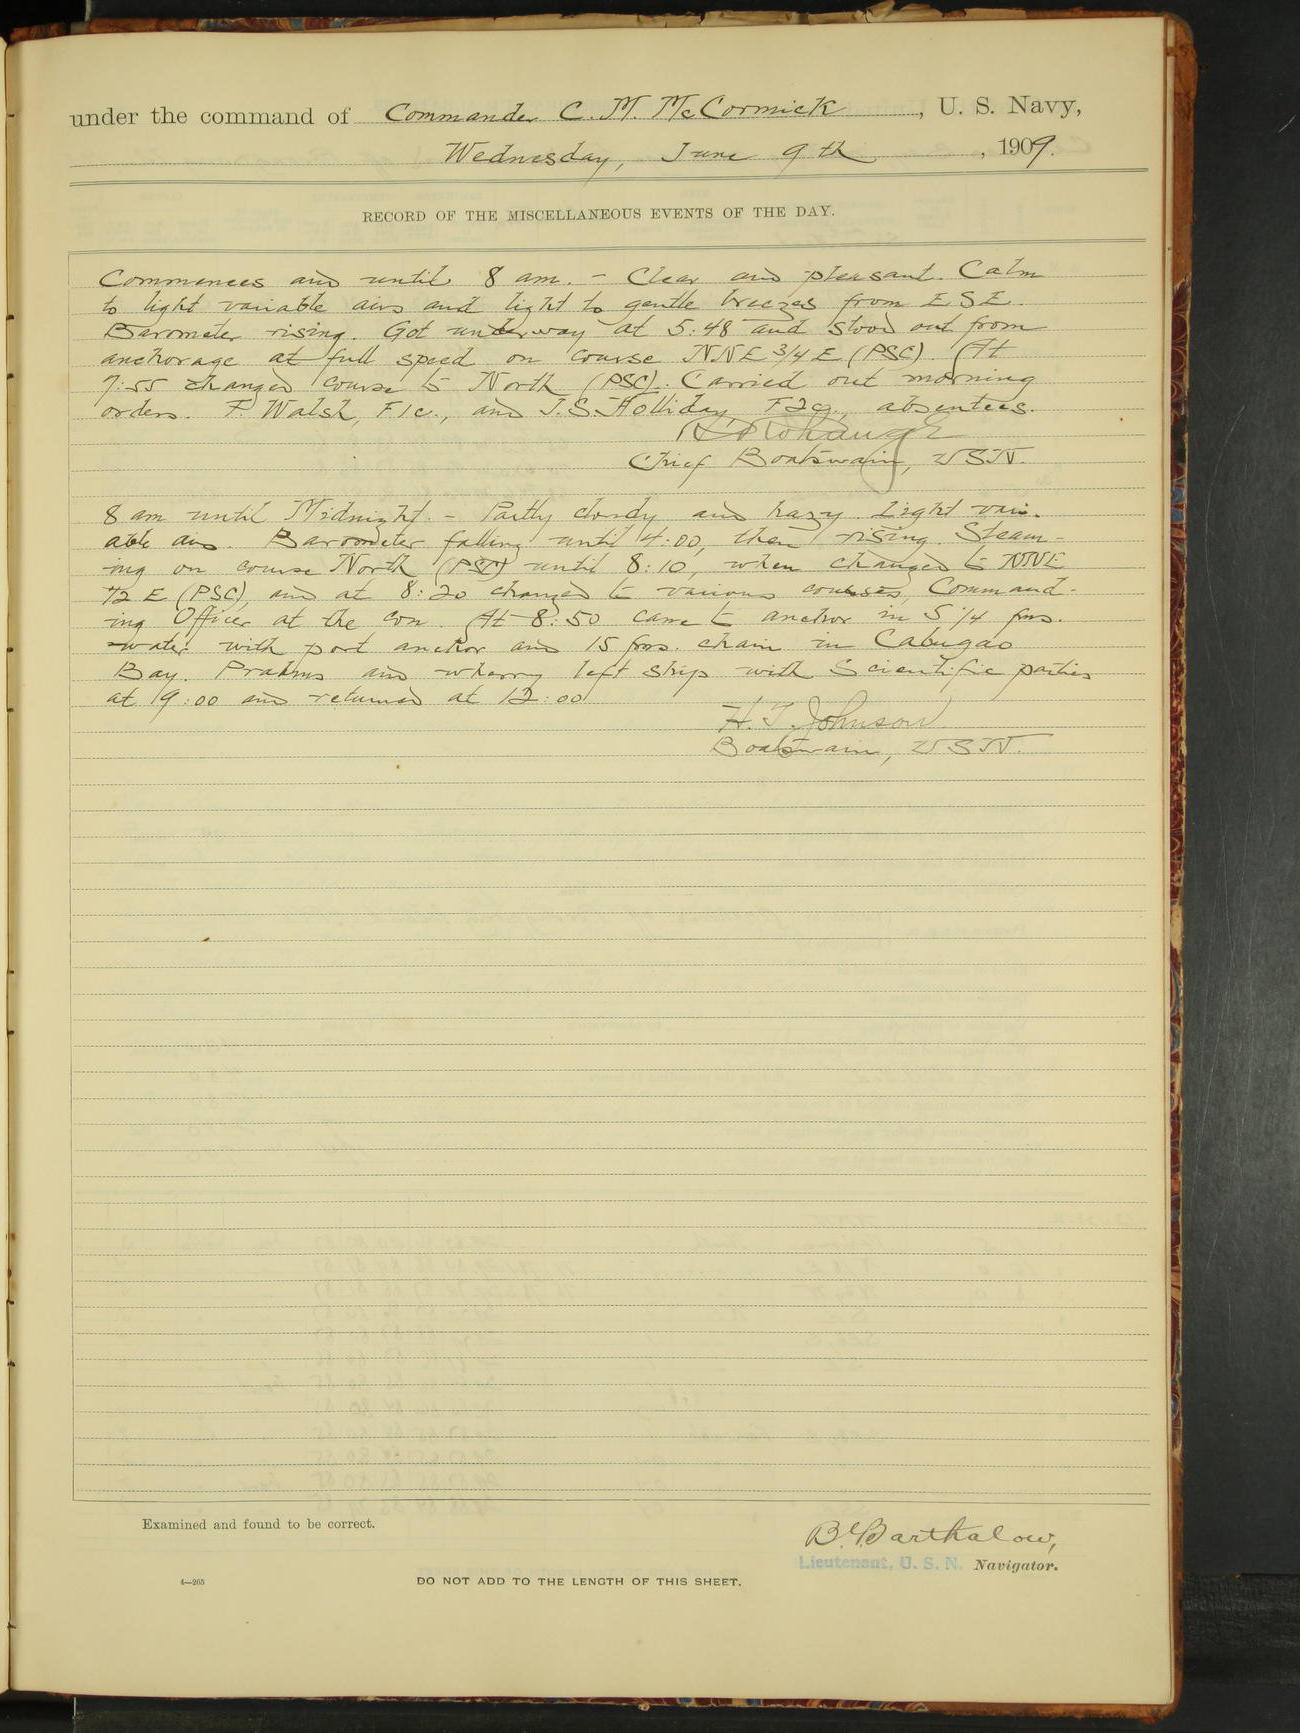 under the command of Commander C. M. McCormick, U. S. Navy,
Wednesday, June 9th, 1909.
RECORD OF THE MISCELLANEOUS EVENTS OF THE DAY.
Commences and until 8 am. - Clear and pleasant. Calm
to light variable airs and light to gentle breezes from ESE.
Barometer rising. Got underway at 5:48 and stood out from
anchorage at full speed on course NNE 3/4 E (PSC). At
7:55 changed course to North (PSC). Carried out morning
orders. F. Walsh, F1c., and J.S. Holliday F2c., absentees.
Chief Boatswain, USN.
8 am until Midnight. - Partly cloudy and hazy. Light vari-
able airs. Barometer falling until 4:00, then rising. Steam-
ing on course North (PSC) until 8:10, when changed to NNE
1/2 E (PSC), and at 8:20 changed to various courses, Command-
ing Officer at the con. At 8:50 came to anchor in 5 1/4 fms.
water with port anchor and 15 fms. chain in Cabugao
Bay. Prahms and wherry left ship with Scientific parties
at 9:00 and returned at 12:00
H. T. Johnson
Boatswain, USN.
Examined and found to be correct.
Barthalow,
Lieutenant, U. S. N. Navigator.
4—265
DO NOT ADD TO THE LENGTH OF THIS SHEET.